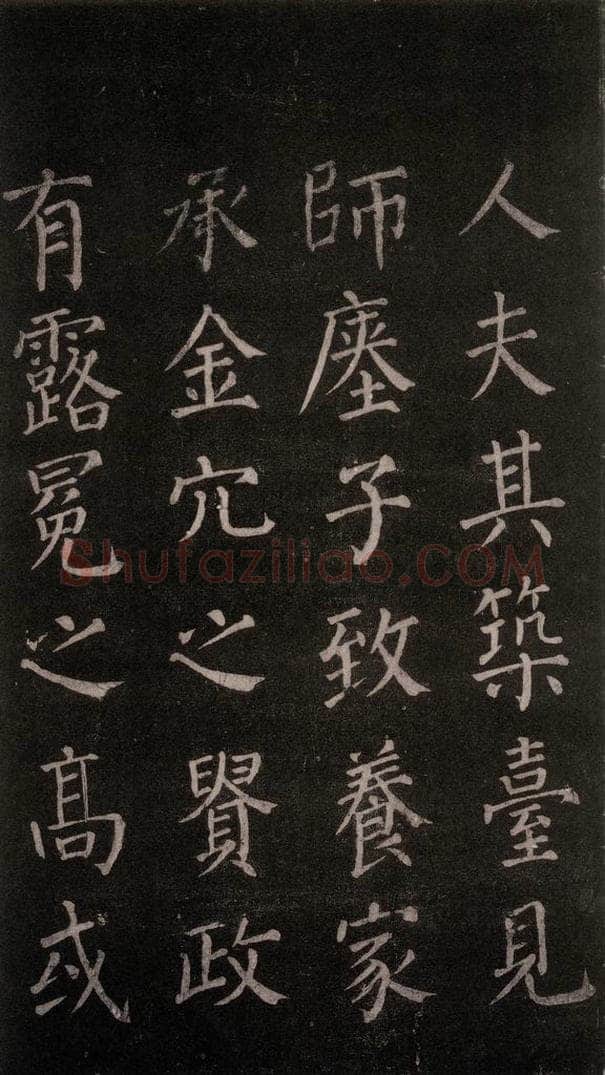 人夫其築臺見
師廛子致養家
承金穴之賢政
有露冕之高或
Shufaziliao.COM